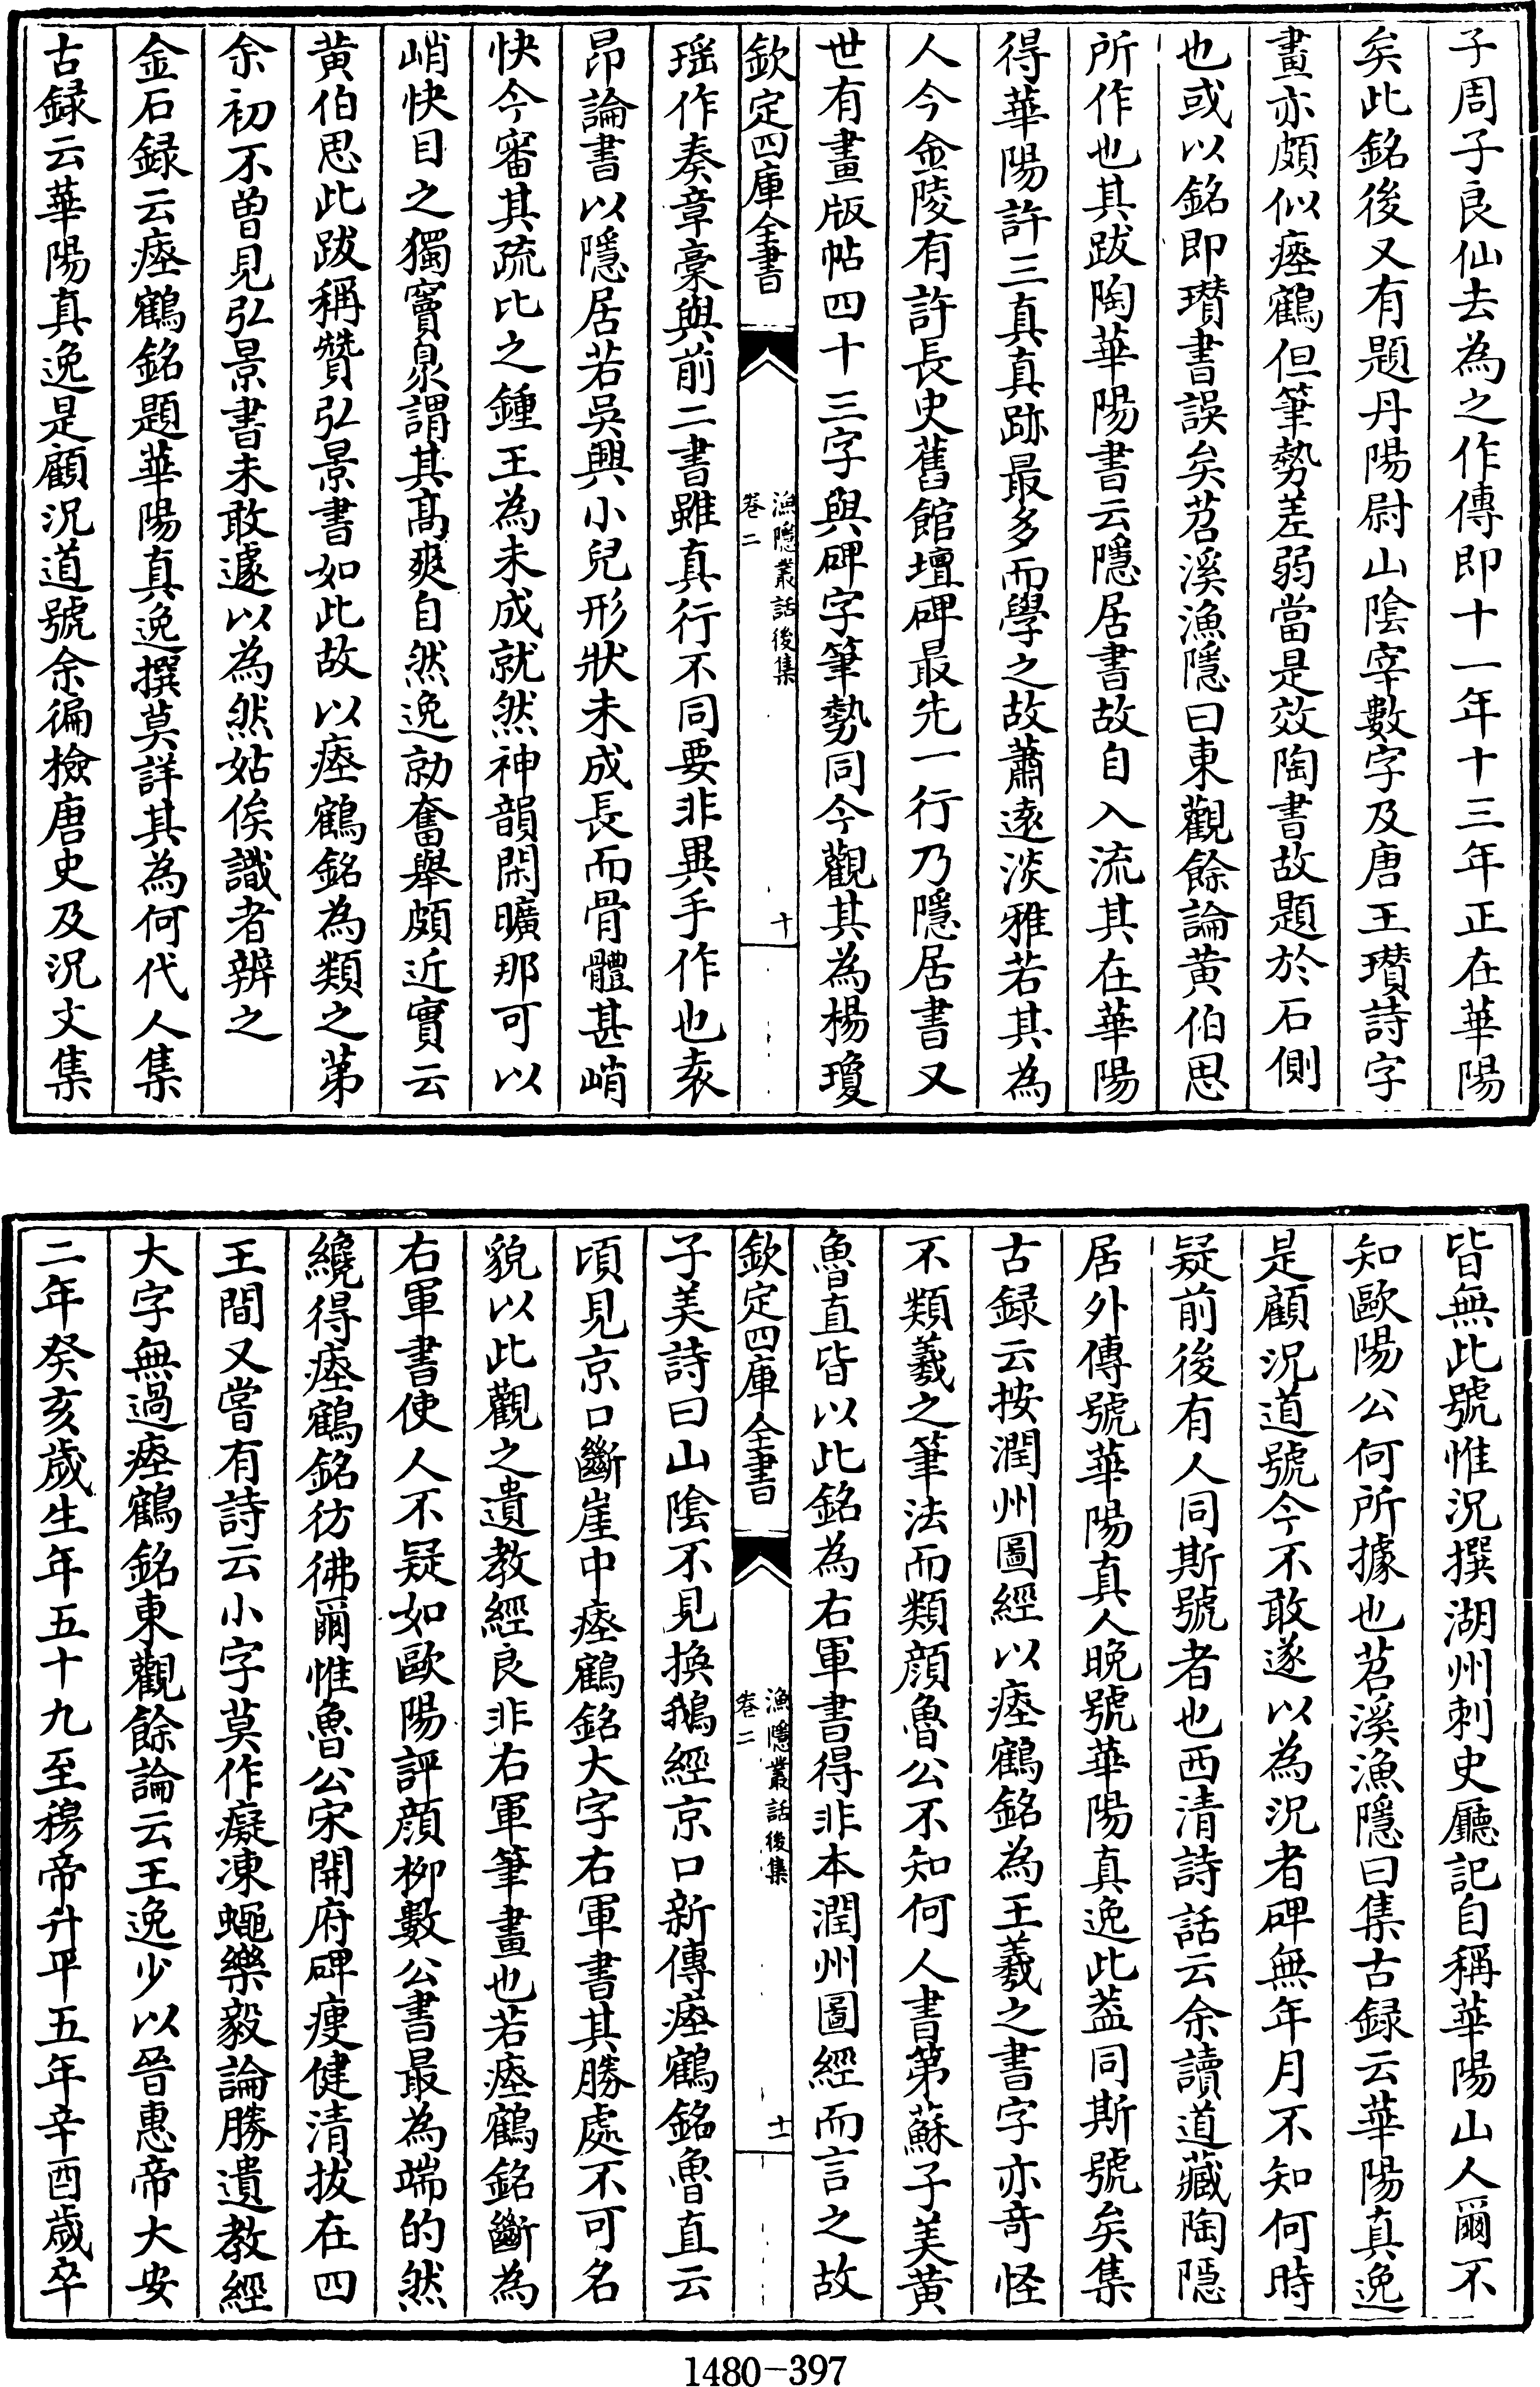 子周子良仙去為之作傳即十一年十三年正在華陽
矣此銘後又有題丹陽尉山陰宰數字及唐王瓚詩字
畫亦頗似瘞鶴但筆勢差弱當是效陶書故題於石側
也或以銘即瓚書誤矣苕溪漁隱曰東觀餘論黄伯思
所作也其跋陶華陽書云隱居書故自入流其在華陽
得華陽許三真真跡最多而學之故蕭遠淡雅若其為
人今金陵有許長史舊館壇碑最先一行乃隱居書又
世有畫版帖四十三字與碑字筆勢同今觀其為楊瓊
欽定四庫全書
漁隱叢話後集
卷二
十
瑶作奏章稾與前二書雖真行不同要非異手作也袁
昂論書以隱居若吳興小兒形狀未成長而骨體甚峭
快今審其疏比之鍾王為未成就然神韻閑曠那可以
峭快目之獨竇臮謂其髙爽自然逸勍奮舉頗近實云
黄伯思此跋稱贊弘景書如此故以瘞鶴銘為類之第
余初不曽見弘景書未敢遽以為然姑俟識者辨之
金石録云瘞鶴銘題華陽真逸撰莫詳其為何代人集
古録云華陽真逸是顧況道號余徧檢唐史及況文集
皆無此號惟況撰湖州刺史廳記自稱華陽山人爾不
知歐陽公何所據也苕溪漁隱曰集古録云華陽真逸
是顧況道號今不敢遂以為況者碑無年月不知何時
疑前後有人同斯號者也西清詩話云余讀道藏陶隱
居外傳號華陽真人晚號華陽真逸此葢同斯號矣集
古録云按潤州圖經以瘞鶴銘為王羲之書字亦竒怪
不類羲之筆法而類顔魯公不知何人書第蘇子美黄
魯直皆以此銘為右軍書得非本潤州圖經而言之故
欽定四庫全書
漁隱叢話後集
卷二
十一
子美詩曰山陰不見換鵝經京口新傳瘞鶴銘魯直云
頃見京口斷崖中瘞鶴銘大字右軍書其勝處不可名
貌以此觀之遺教經良非右軍筆畫也若瘞鶴銘斷為
右軍書使人不疑如歐陽評顔柳數公書最為端的然
纔得瘞鶴銘彷彿爾惟魯公宋開府碑瘦健清拔在四
王間又嘗有詩云小字莫作癡凍蠅樂毅論勝遺教經
大字無過瘞鶴銘東觀餘論云王逸少以晉惠帝大安
二年癸亥歲生年五十九至穆帝升平五年辛酉歲卒
1480-397